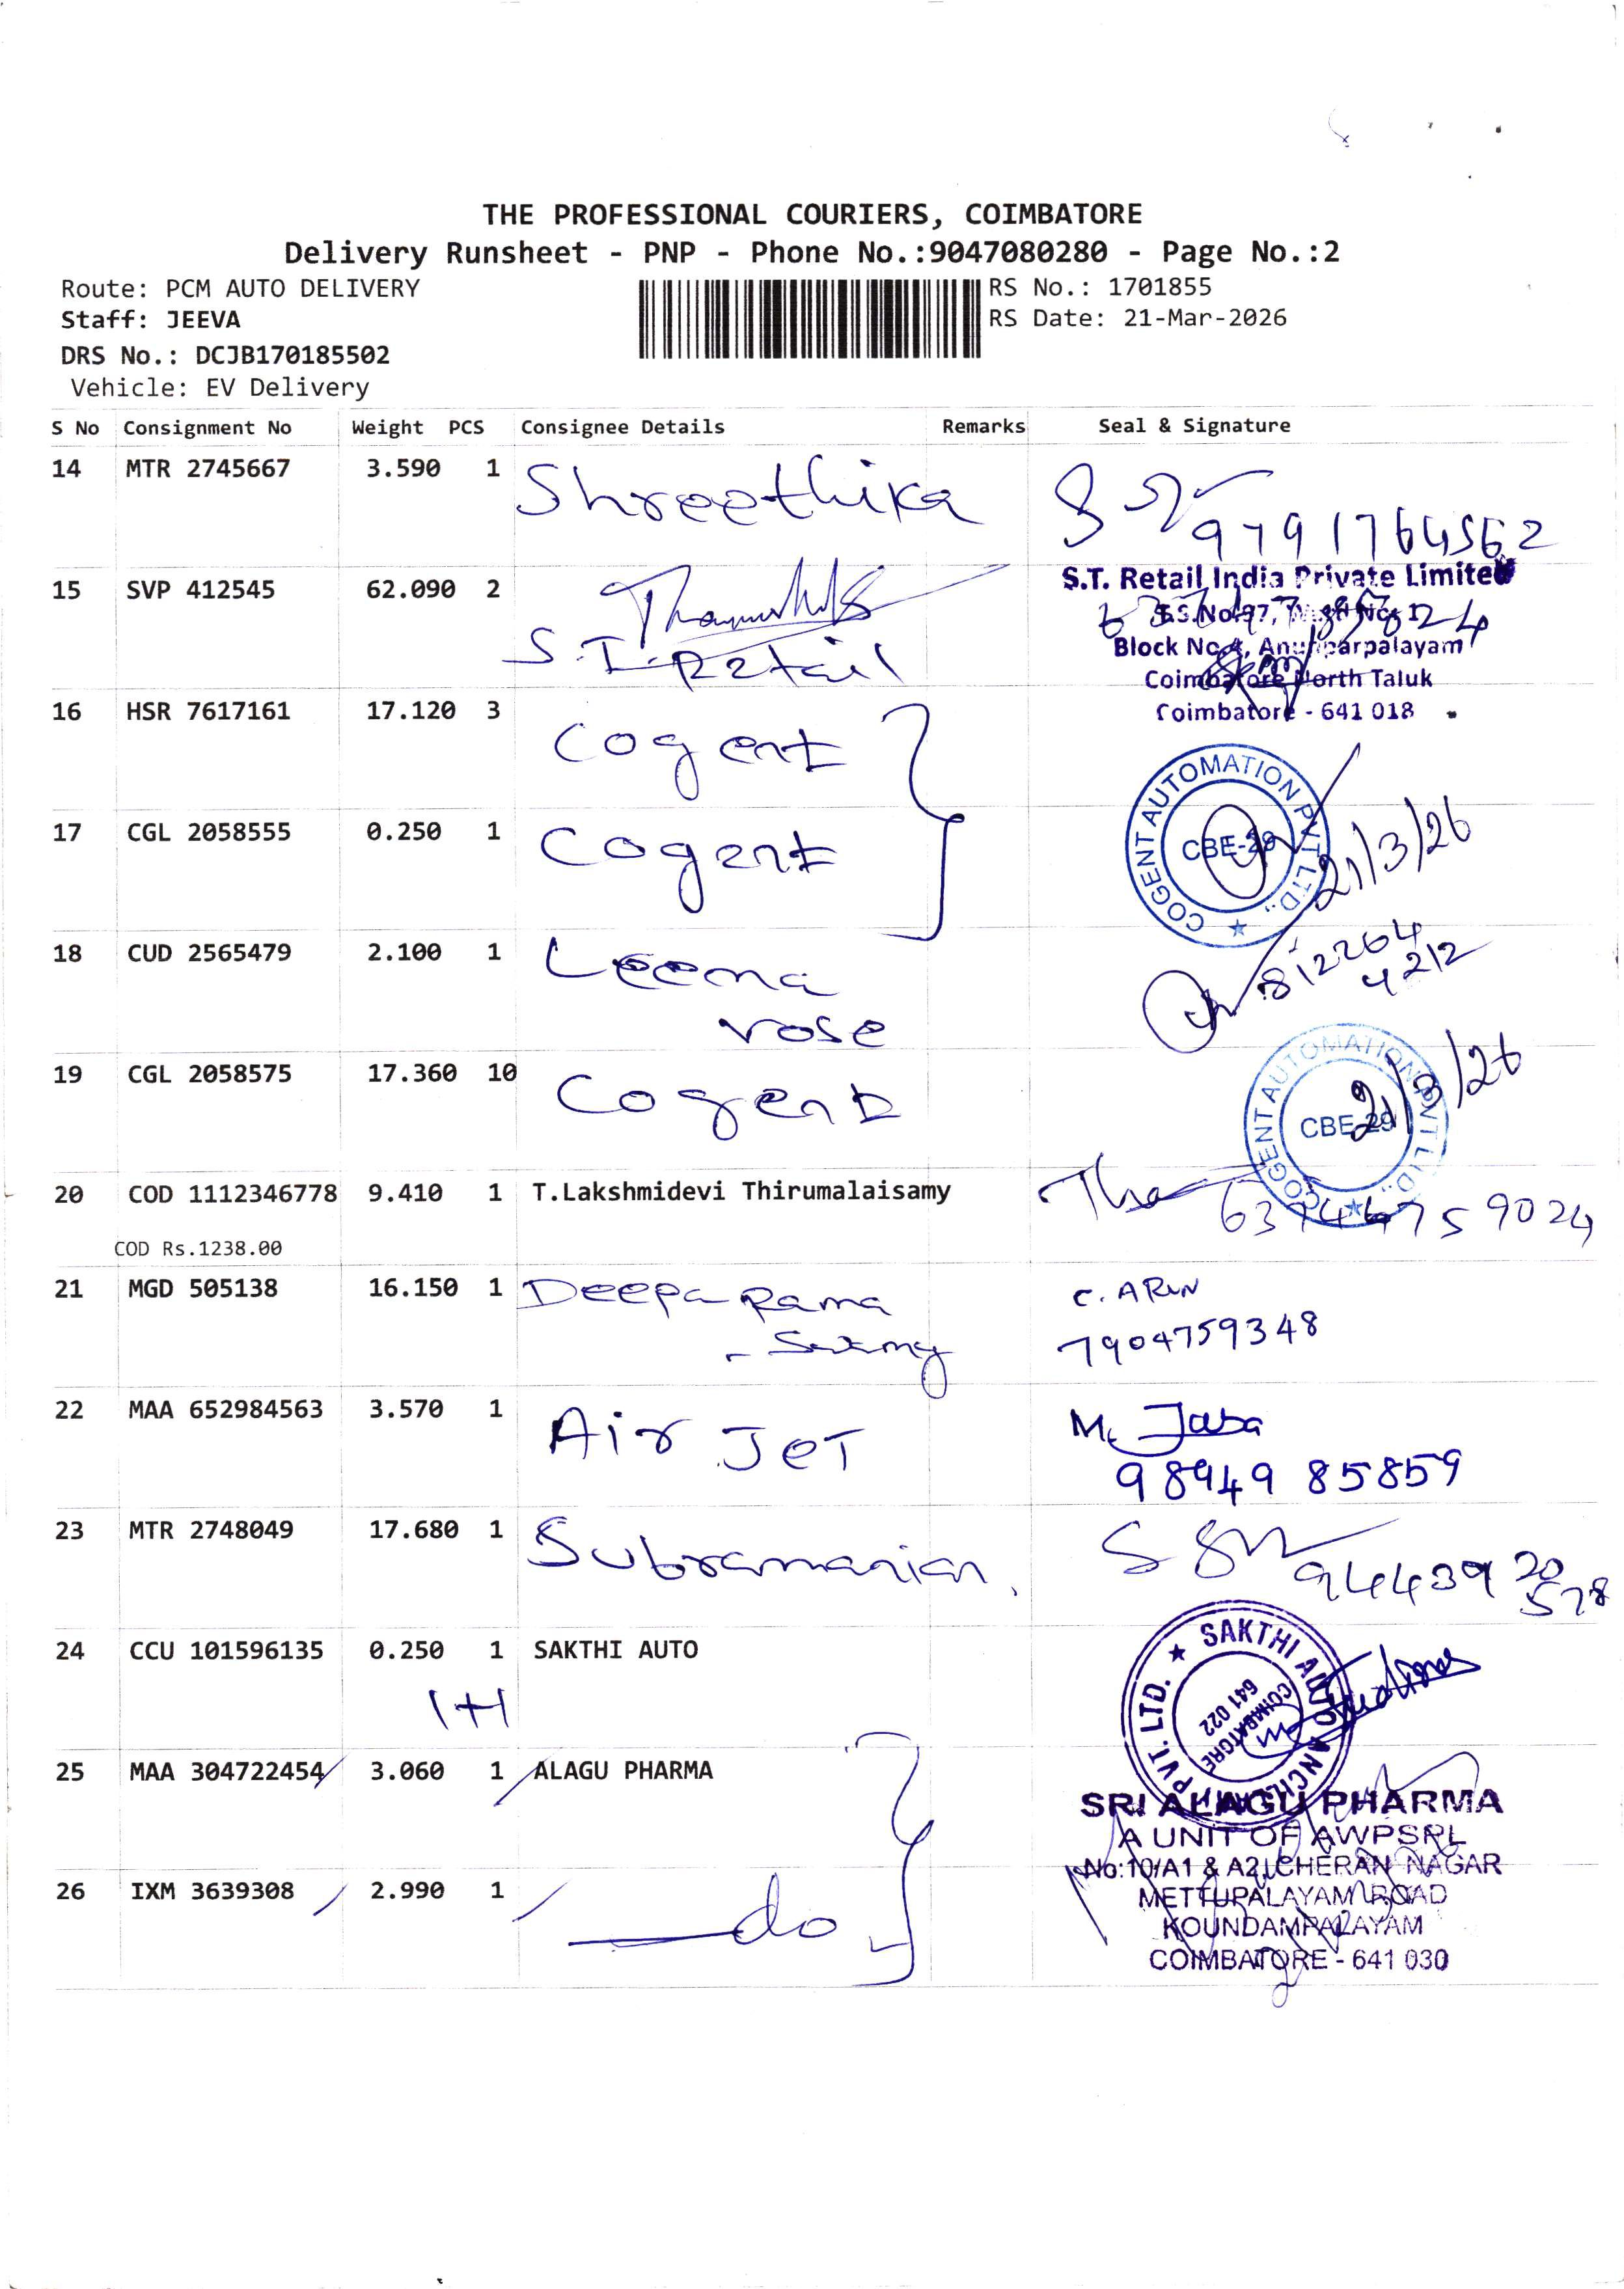 THE PROFESSIONAL COURIERS, COIMBATORE
Delivery Runsheet - PNP - Phone No.:9047080280 - Page No.:2
Route: PCM AUTO DELIVERY
RS No.: 1701855
Staff: JEEVA
RS Date: 21-Mar-2026
DRS No.: DCJB170185502
Vehicle: EV Delivery
S No Consignment No Weight PCS Consignee Details Remarks Seal & Signature
14 MTR 2745667 3.590 1 Shreethika
9791764562
15 SVP 412545 62.090 2 S.T. Retail
S.T. Retail India Private Limited
Block No.4, Anupparpalayam
Coimbatore North Taluk
Coimbatore - 641 018
16 HSR 7617161 17.120 3 Cogent
17 CGL 2058555 0.250 1 Cogent
COGENT AUTOMATION PVT LTD.,
CBE-29
21/3/26
18 CUD 2565479 2.100 1 Leema
rose
812264
4212
19 CGL 2058575 17.360 10 Cogent
COGENT AUTOMATION PVT LTD.,
CBE-29
21/3/26
20 COD 1112346778 9.410 1 T.Lakshmidevi Thirumalaisamy
COD Rs.1238.00
21 MGD 505138 16.150 1 Deepa Rama
- Swamy
C. ARUN
7904759348
22 MAA 652984563 3.570 1 Air JET
M.
98949 85859
23 MTR 2748049 17.680 1 Subramanian.
944439 20
578
24 CCU 101596135 0.250 1 SAKTHI AUTO
1+1
SAKTHI AUTO ANCILLARY PVT. LTD.
COIMBATORE
641 022
25 MAA 304722454 3.060 1 ALAGU PHARMA
26 IXM 3639308 2.990 1 do
SRI ALAGU PHARMA
A UNIT OF AWPSRL
No:10/A1 & A2, CHERAN NAGAR
METTUPALAYAM ROAD
KOUNDAMPALAYAM
COIMBATORE - 641 030